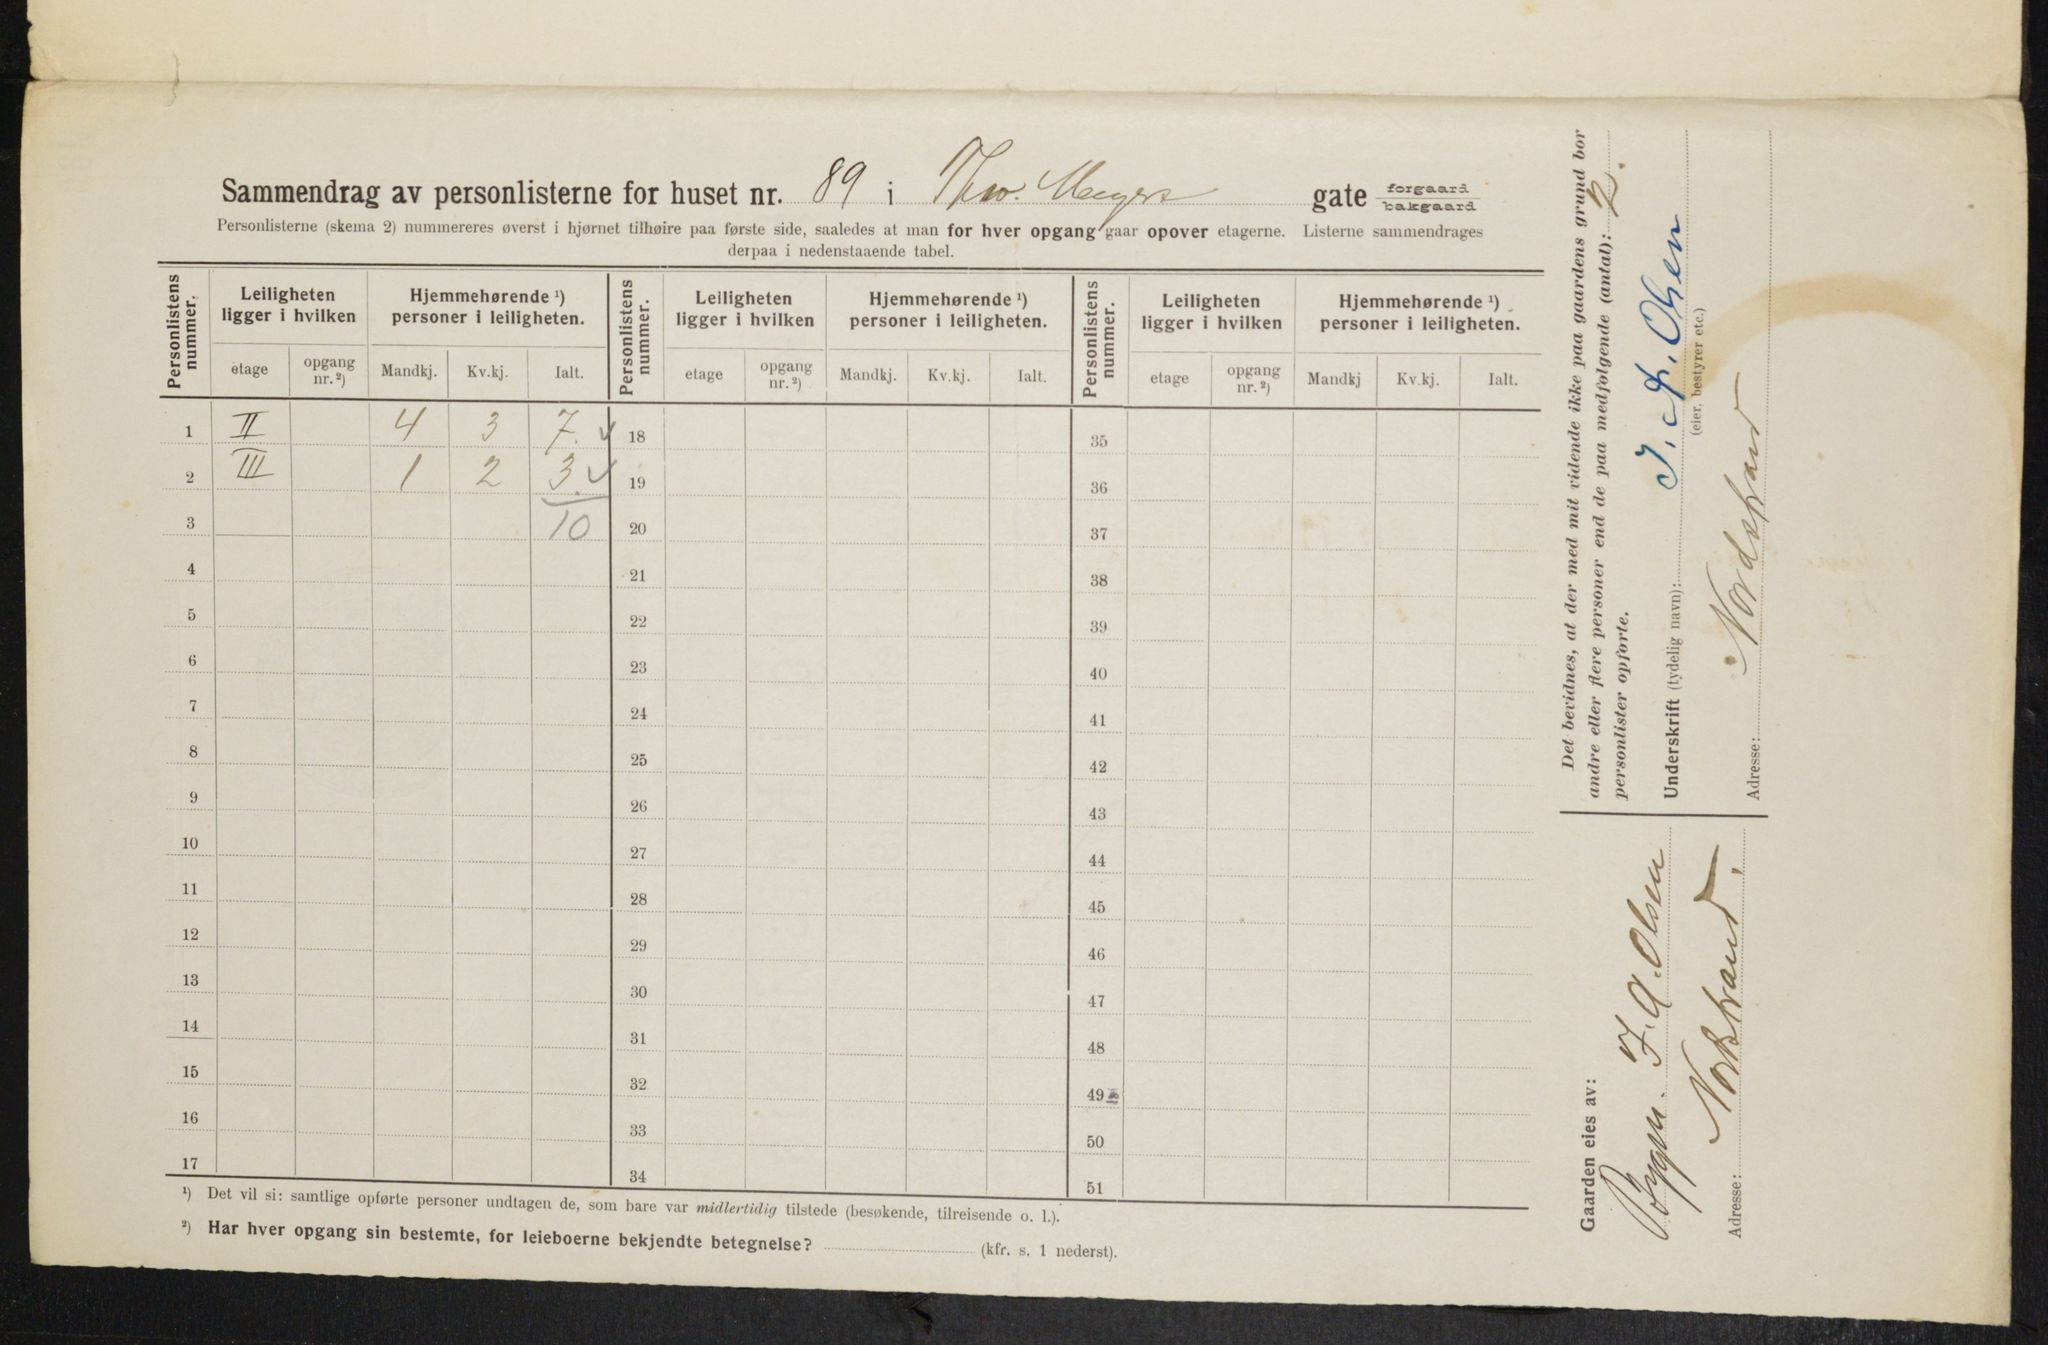 Sammendrag av personlisterne for huset nr. 89 i Thv. Meyers gate forgaard bakgaard
Personlisterne (skema 2) nummereres øverst i hjørnet tilhøire paa første side, saaledes at man for hver opgang gaar opover etagerne. Listerne sammendrages
derpaa i nedenstaaende tabel.
Personlistens nummer. Leiligheten ligger i hvilken Hjemmehørende ¹) personer i leiligheten. Personlistens nummer. Leiligheten ligger i hvilken Hjemmehørende ¹) personer i leiligheten. Personlistens nummer. Leiligheten ligger i hvilken Hjemmehørende ¹) personer i leiligheten.
etage opgang nr.²) Mandkj. Kv.kj. Ialt. etage opgang nr.²) Mandkj. Kv.kj. Ialt. etage opgang nr.²) Mandkj Kv.kj. Ialt.
1 II 4 3 7. 18 35
2 III 1 2 3. 19 36
3 10 20 37
4 21 38
5 22 39
6 23 40
7 24 41
8 25 42
9 26 43
10 27 44
11 28 45
12 29 46
13 30 47
14 31 48
15 32 49
16 33 50
17 34 51
¹) Det vil si: samtlige opførte personer undtagen de, som bare var midlertidig tilstede (besøkende, tilreisende o. l.).
²) Har hver opgang sin bestemte, for leieboerne bekjendte betegnelse? (kfr. s. 1 nederst).
Det bevidnes, at der med mit vidende ikke paa gaardens grund bor
andre eller flere personer end de paa medfølgende (antal): 2.
personlister opførte.
Underskrift (tydelig navn): J. A. Olsen
(eier, bestyrer etc.)
Adresse: Nordstrand
Gaarden eies av:
Bygm. J. A. Olsen
Adresse: Nordstrand.